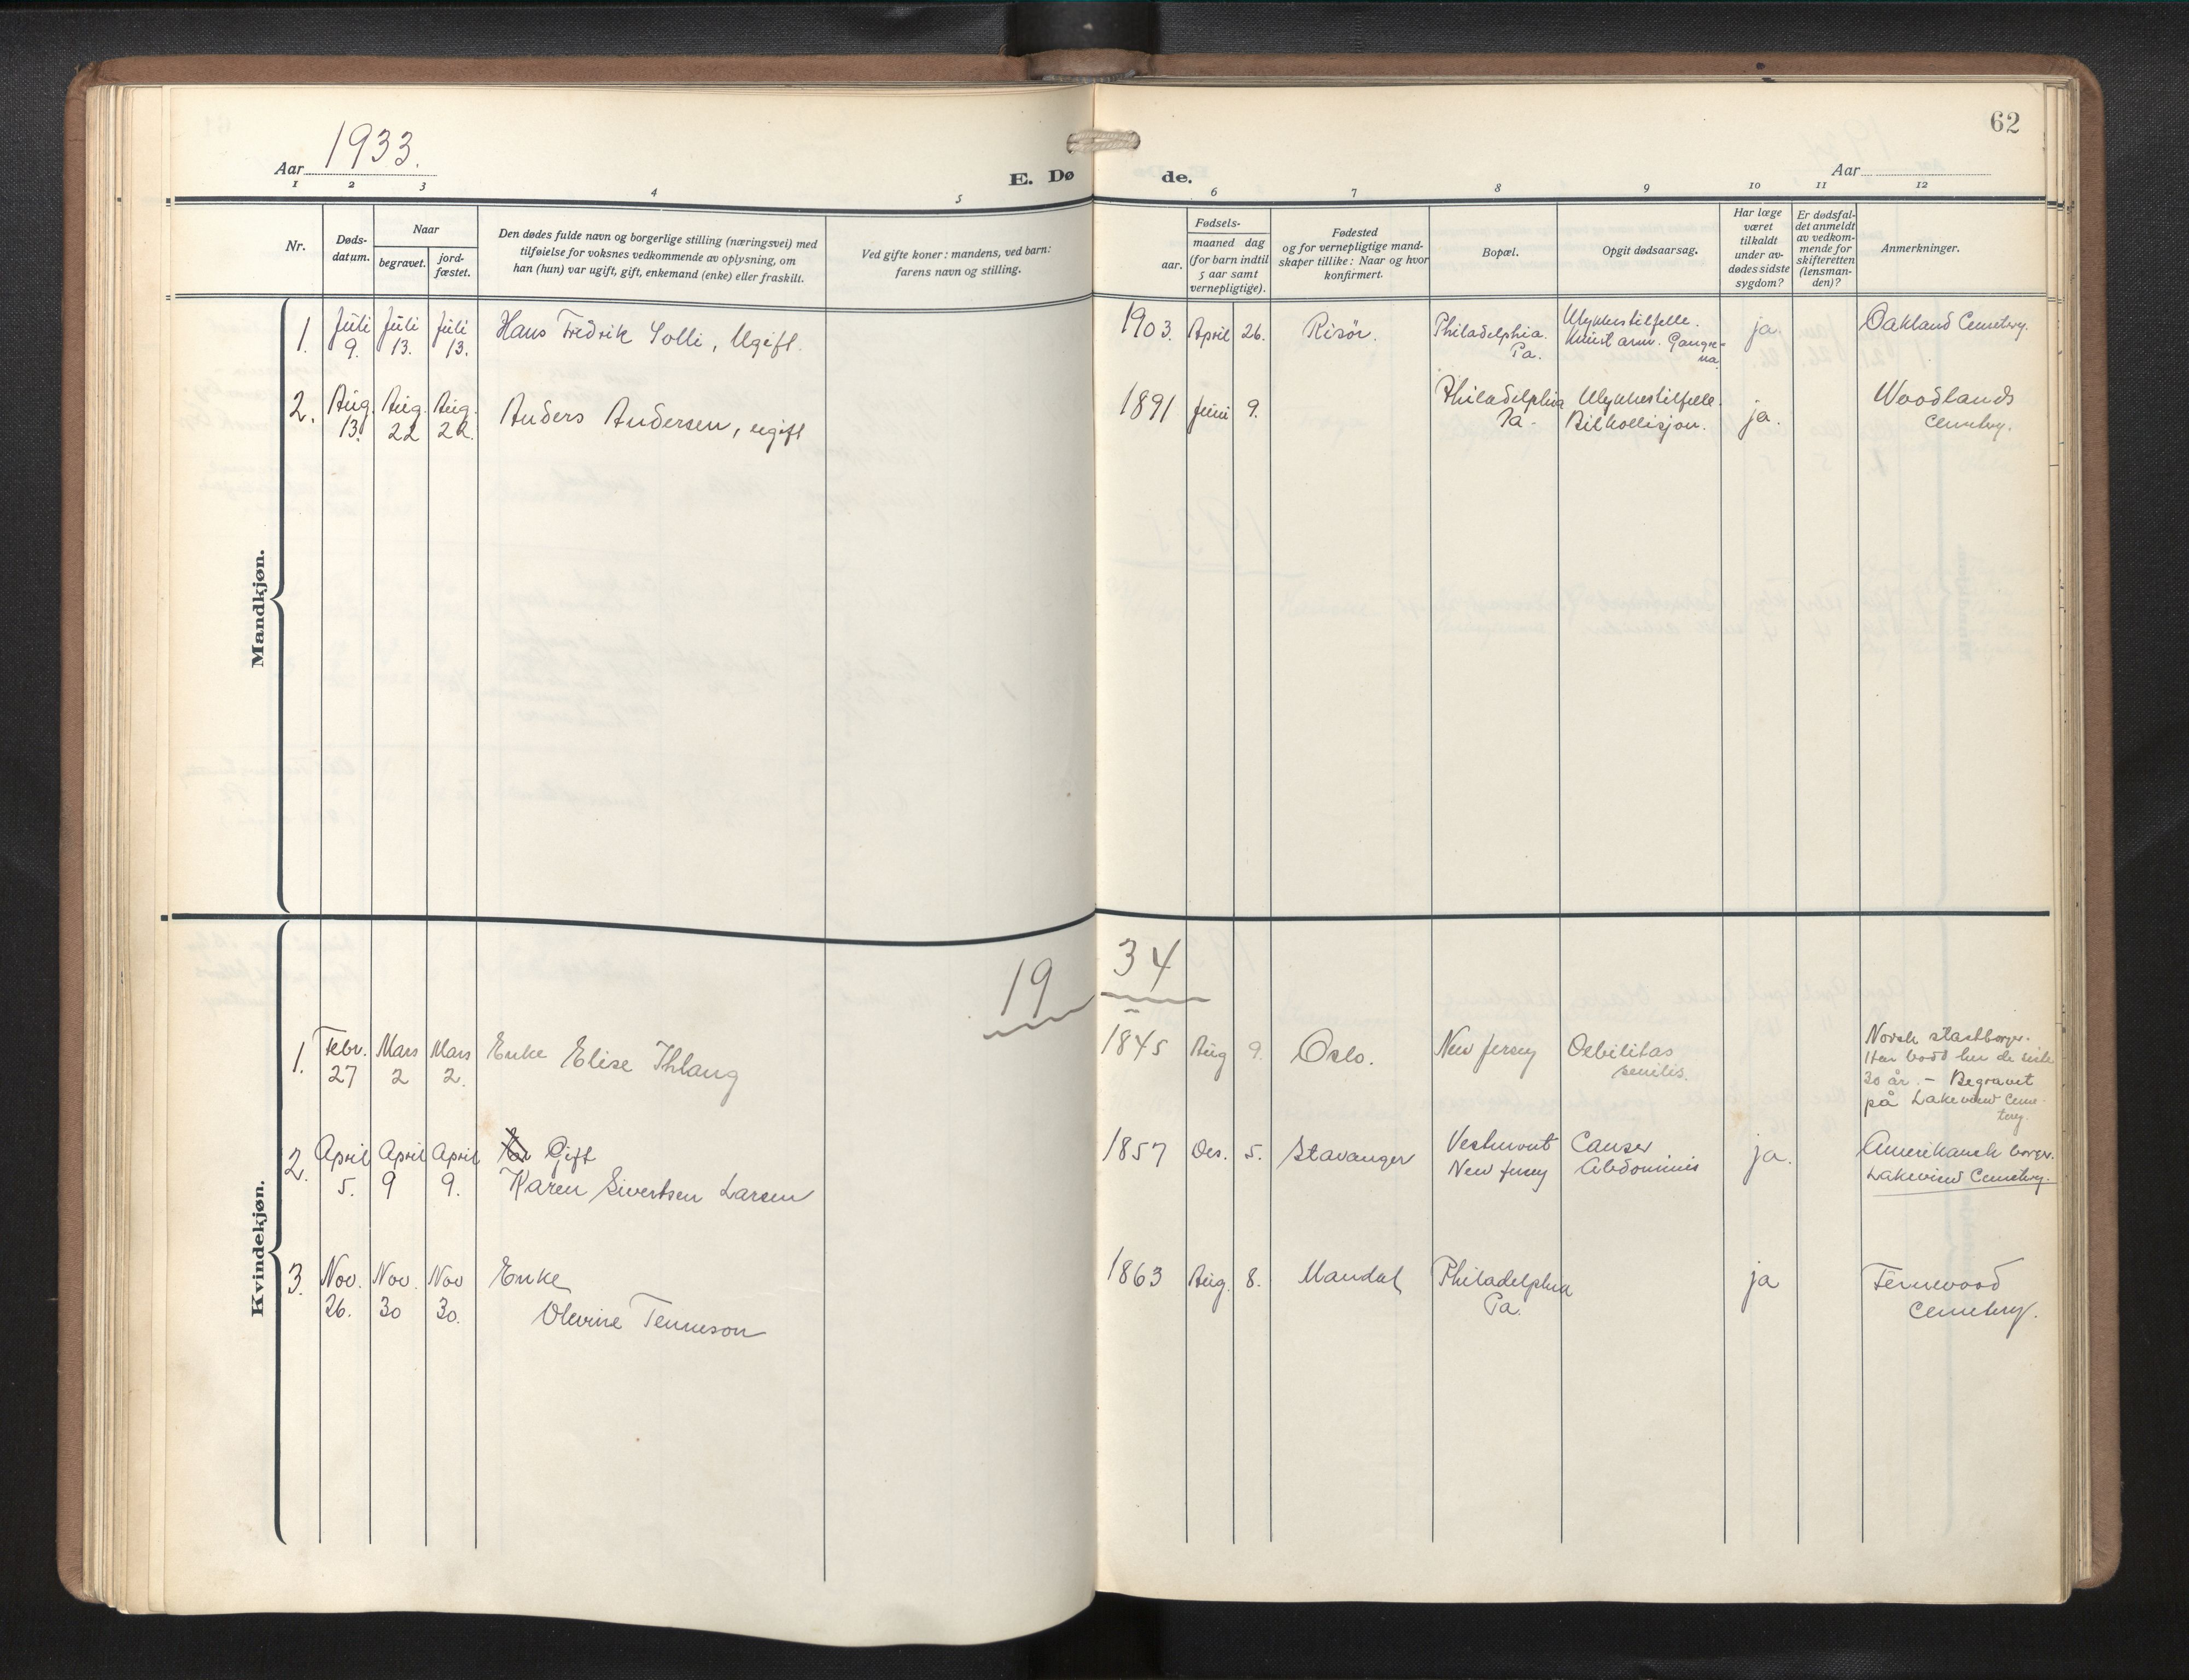 1933.
Aar
E. Dø
de.
Aar
62
1 2 3 4 5 6 7 8 9 10 11 12
Nr.
Døds-
datum.
Naar
begravet.
jord-
fæstet.
Den dødes fulde navn og borgerlige stilling (næringsvei) med
tilføielse for voksnes vedkommende av oplysning, om
han (hun) var ugift, gift, enkemand (enke) eller fraskilt.
Ved gifte koner: mandens, ved barn:
farens navn og stilling.
Fødsels-
aar.
maaned dag
(for barn indtil
5 aar samt
vernepligtige).
Fødested
og for vernepligtige mand-
skaper tillike: Naar og hvor
konfirmert.
Bopæl.
Opgit dødsaarsag.
Har læge
været
tilkaldt
under av-
dødes sidste
sygdom?
Er dødsfal-
det anmeldt
av vedkom-
mende for
skifteretten
(lensman-
den)?
Anmerkninger.
Mandkjøn.
1. Juli 9. Juli 13. Juli 13. Hans Fredrik Solli, Ugift. 1903. April 26. Risör. Philadelphia. Pa. Ulykkestilfelle. Knust arm. Gangre- na. ja. Oakland Cemetery.
2. Aug. 13. Aug. 22 Aug. 22. Anders Andersen, ugift 1891 Juni 9. Philadelphia Pa. Ulykkestilfelle. Bilkollisjon. ja. Woodlands Cemetery.
Kvindekjøn.
19 34
1. Febr. 27 Mars 2 Mars 2. Enke Elise Ihlang 1845 Aug 9. Oslo. New Jersey Debilitas senilis. Norsk statsborger. Har bodd her de siste 30 år. - Begravet på Lakeview Ceme- tery.
2. April 5. April 9 April 9. Gift Karen Sivertsen Larsen 1857 Des. 5. Stavanger Vestmont New Jersey Cancer Abdominis ja. Amerikansk borger. Lakeview Cemetery.
3. Nov. 26. Nov. 30 Nov 30. Enke Olevine Tenneson 1863 Aug. 8. Mandal Philadelphia Pa. ja Fernwood Cemetery.